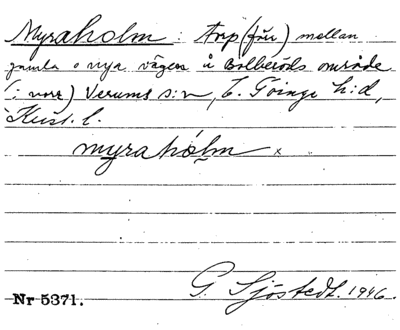 Myraholm : Torp (förr) mellan
gamla o nya vägen å Bolberöds område
(: norr) Verums s:n, V. Göinge h:d,
Krist. l.
myrahólm ×
G. Sjöstedt. 1946.
Nr 5371.